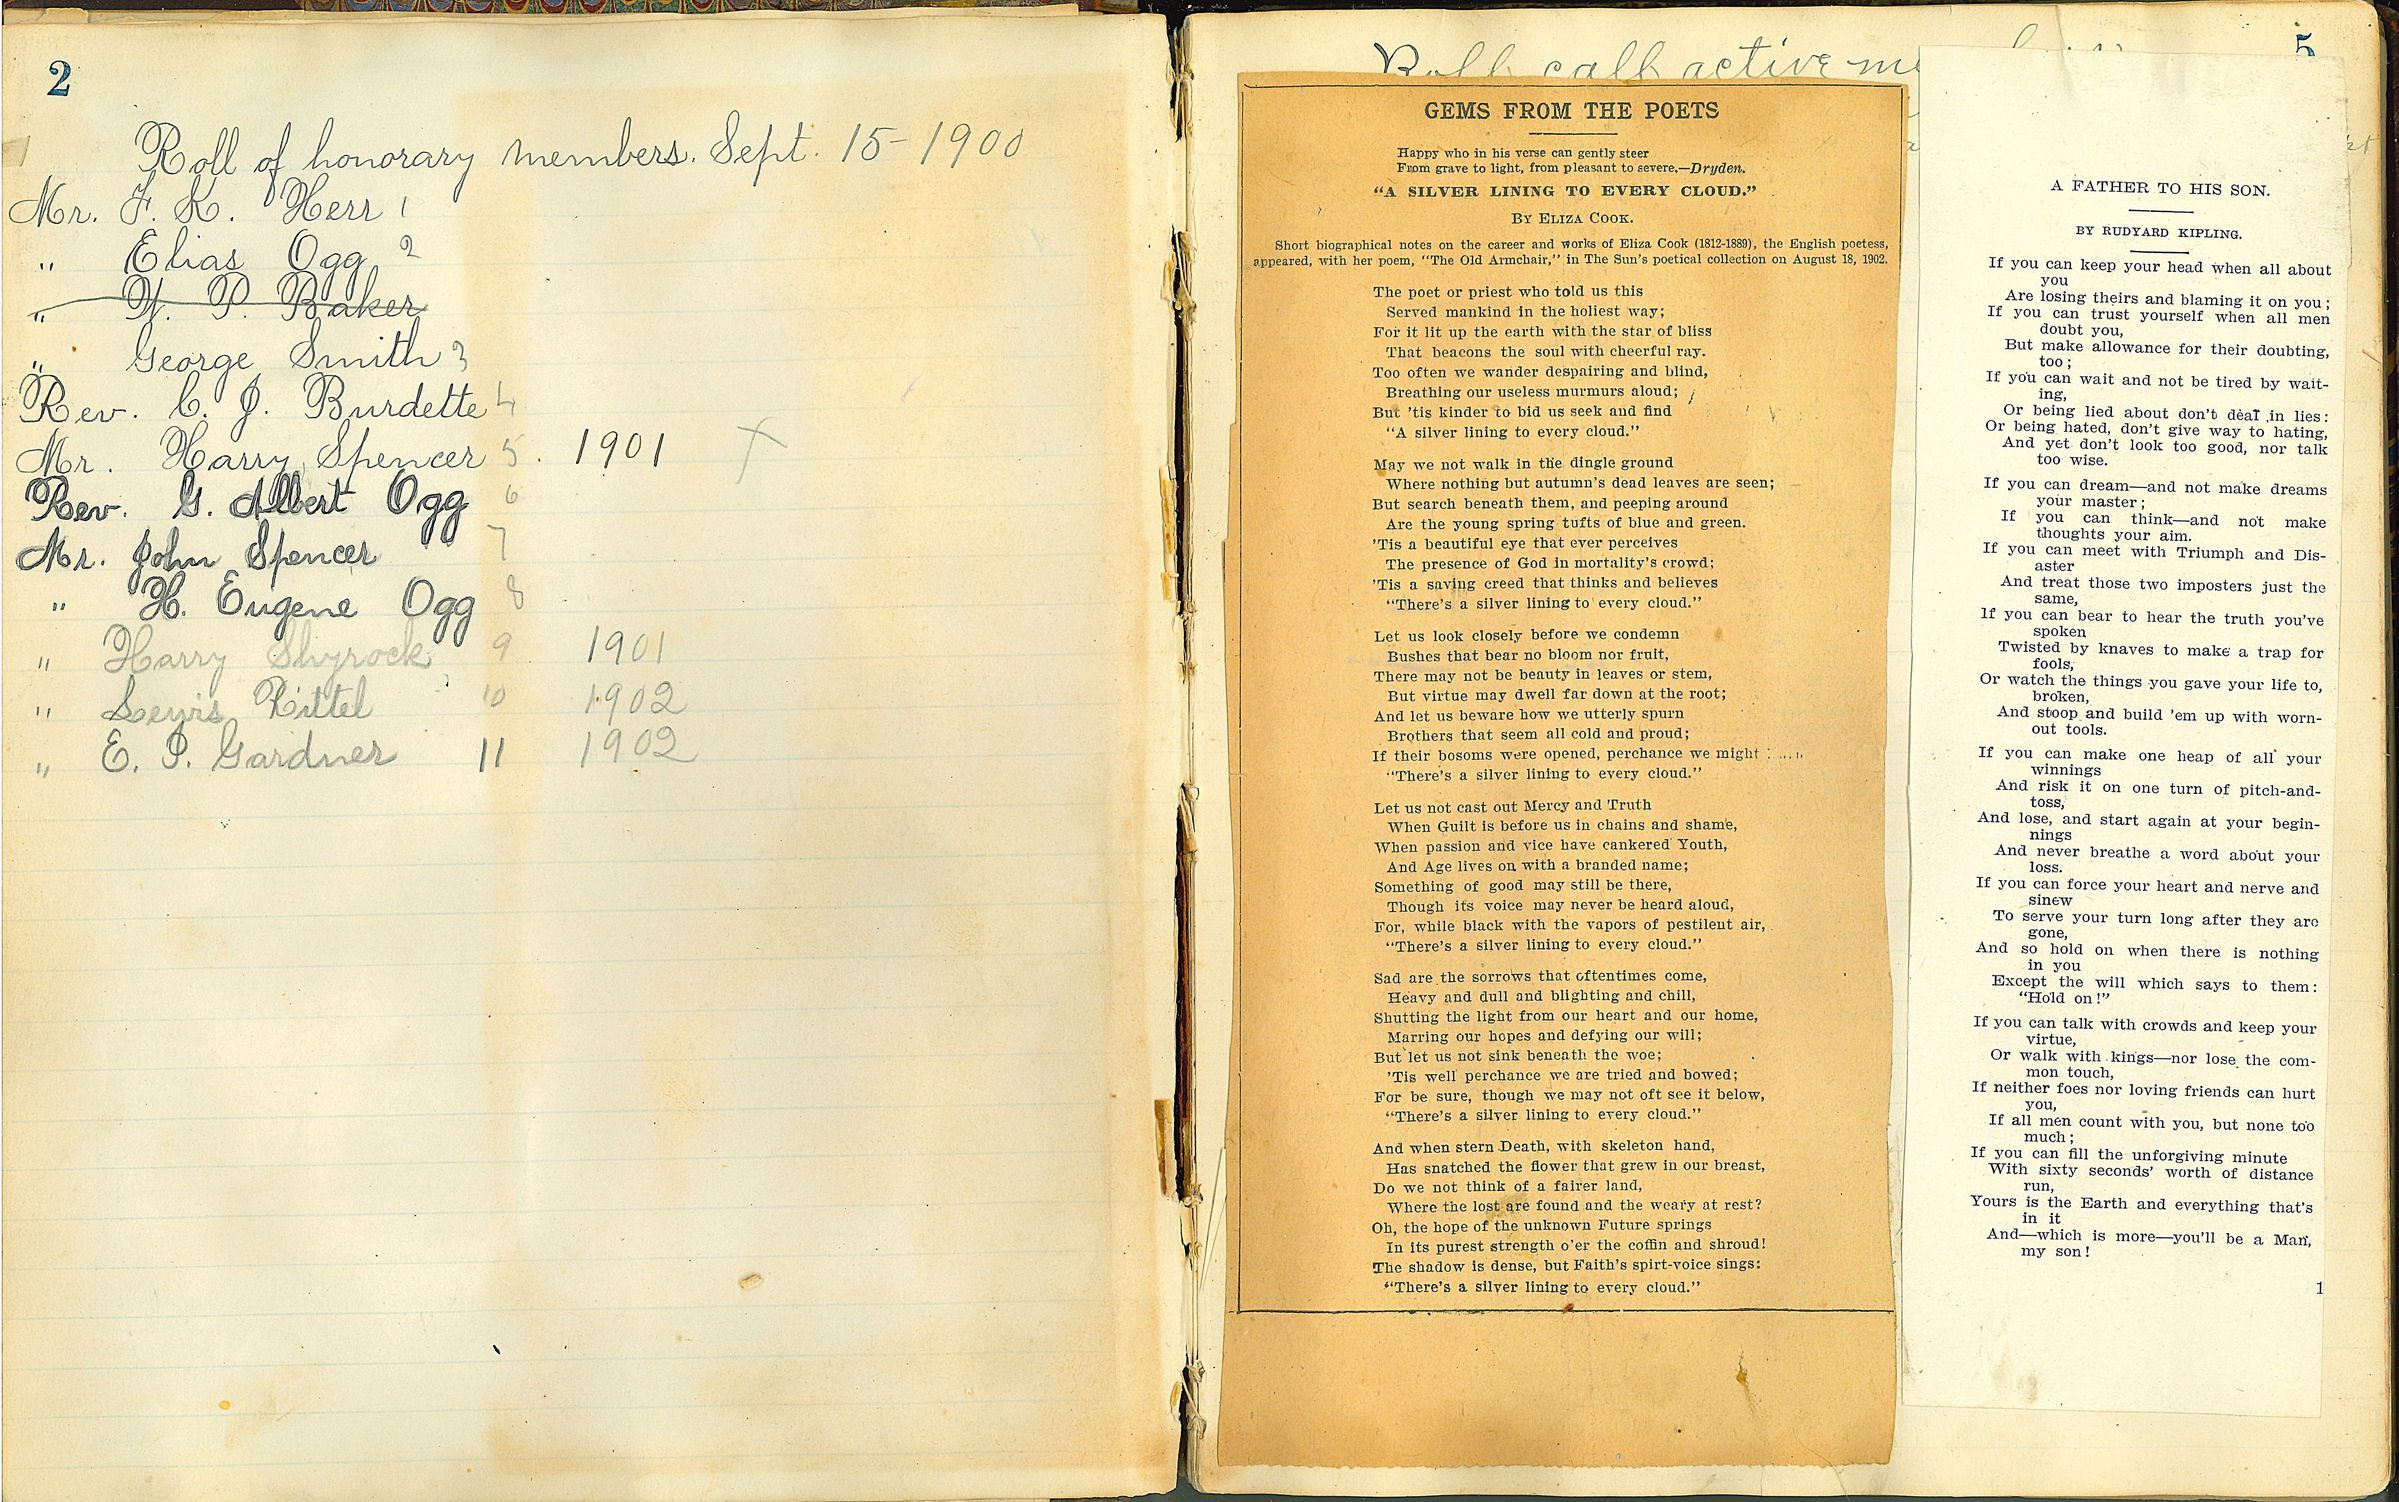 2
Roll of honorary members. Sept. 15-1900
Mr. F. K. Herr 1
" Elias Ogg 2
" W. P. Baker
" George Smith 3
Rev. C. J. Burdette 4
Mr. Harry Spencer 5. 1901 X
Rev. G. Albert Ogg 6
Mr. John Spencer 7
" H. Eugene Ogg 8
" Harry Shyrock 9 1901
" Lewis Kittel 10 1902
" E. P. Gardner 11 1902
5
Roll call active
GEMS FROM THE POETS
Happy who in his verse can gently steer
From grave to light, from pleasant to severe.—Dryden.
"A SILVER LINING TO EVERY CLOUD."
BY ELIZA COOK.
Short biographical notes on the career and works of Eliza Cook (1812-1889), the English poetess,
appeared, with her poem, "The Old Armchair," in The Sun's poetical collection on August 18, 1902.
The poet or priest who told us this
Served mankind in the holiest way;
For it lit up the earth with the star of bliss
That beacons the soul with cheerful ray.
Too often we wander despairing and blind,
Breathing our useless murmurs aloud;
But 'tis kinder to bid us seek and find
"A silver lining to every cloud."
May we not walk in the dingle ground
Where nothing but autumn's dead leaves are seen;
But search beneath them, and peeping around
Are the young spring tufts of blue and green.
'Tis a beautiful eye that ever perceives
The presence of God in mortality's crowd;
'Tis a saving creed that thinks and believes
"There's a silver lining to every cloud."
Let us look closely before we condemn
Bushes that bear no bloom nor fruit,
There may not be beauty in leaves or stem,
But virtue may dwell far down at the root;
And let us beware how we utterly spurn
Brothers that seem all cold and proud;
If their bosoms were opened, perchance we might
"There's a silver lining to every cloud."
Let us not cast out Mercy and Truth
When Guilt is before us in chains and shame,
When passion and vice have cankered Youth,
And Age lives on with a branded name;
Something of good may still be there,
Though its voice may never be heard aloud,
For, while black with the vapors of pestilent air,
"There's a silver lining to every cloud."
Sad are the sorrows that oftentimes come,
Heavy and dull and blighting and chill,
Shutting the light from our heart and our home,
Marring our hopes and defying our will;
But let us not sink beneath the woe;
'Tis well perchance we are tried and bowed;
For be sure, though we may not oft see it below,
"There's a silver lining to every cloud."
And when stern Death, with skeleton hand,
Has snatched the flower that grew in our breast,
Do we not think of a fairer land,
Where the lost are found and the weary at rest?
Oh, the hope of the unknown Future springs
In its purest strength o'er the coffin and shroud!
The shadow is dense, but Faith's spirt-voice sings:
"There's a silver lining to every cloud."
A FATHER TO HIS SON.
BY RUDYARD KIPLING.
If you can keep your head when all about
you
Are losing theirs and blaming it on you;
If you can trust yourself when all men
doubt you,
But make allowance for their doubting,
too;
If you can wait and not be tired by wait-
ing,
Or being lied about don't deal in lies:
Or being hated, don't give way to hating,
And yet don't look too good, nor talk
too wise.
If you can dream—and not make dreams
your master;
If you can think—and not make
thoughts your aim.
If you can meet with Triumph and Dis-
aster
And treat those two imposters just the
same,
If you can bear to hear the truth you've
spoken
Twisted by knaves to make a trap for
fools,
Or watch the things you gave your life to,
broken,
And stoop and build 'em up with worn-
out tools.
If you can make one heap of all your
winnings
And risk it on one turn of pitch-and-
toss,
And lose, and start again at your begin-
nings
And never breathe a word about your
loss.
If you can force your heart and nerve and
sinew
To serve your turn long after they are
gone,
And so hold on when there is nothing
in you
Except the will which says to them:
"Hold on!"
If you can talk with crowds and keep your
virtue,
Or walk with kings—nor lose the com-
mon touch,
If neither foes nor loving friends can hurt
you,
If all men count with you, but none too
much;
If you can fill the unforgiving minute
With sixty seconds' worth of distance
run,
Yours is the Earth and everything that's
in it
And—which is more—you'll be a Man,
my son!
1